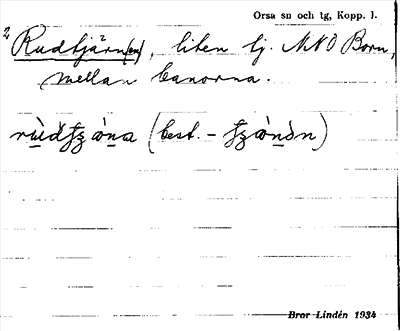 Orsa sn och tg, Kopp. l.
2 Rudtjärn(en), liten tj. NNO Born,
mellan banorna.
(best. –
Bror Lindén 1934